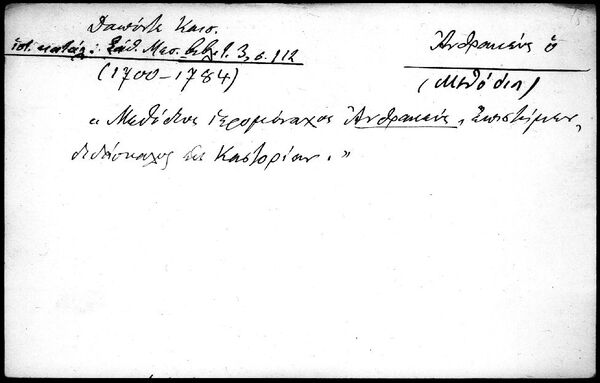 Δαπόντε Καισ.
ἱστ. κατάλ: Σάθ. Μεσ. βιβλ. τ. 3, σ. 112
(1700-1784)
Ἀνθρακεύς ὁ
(Μεθόδιος)
« Μεθόδιος ἱερομόναχος Ἀνθρακεύς, ἐπιστήμων,
διδάσκαλος εἰς Καστορίαν. »